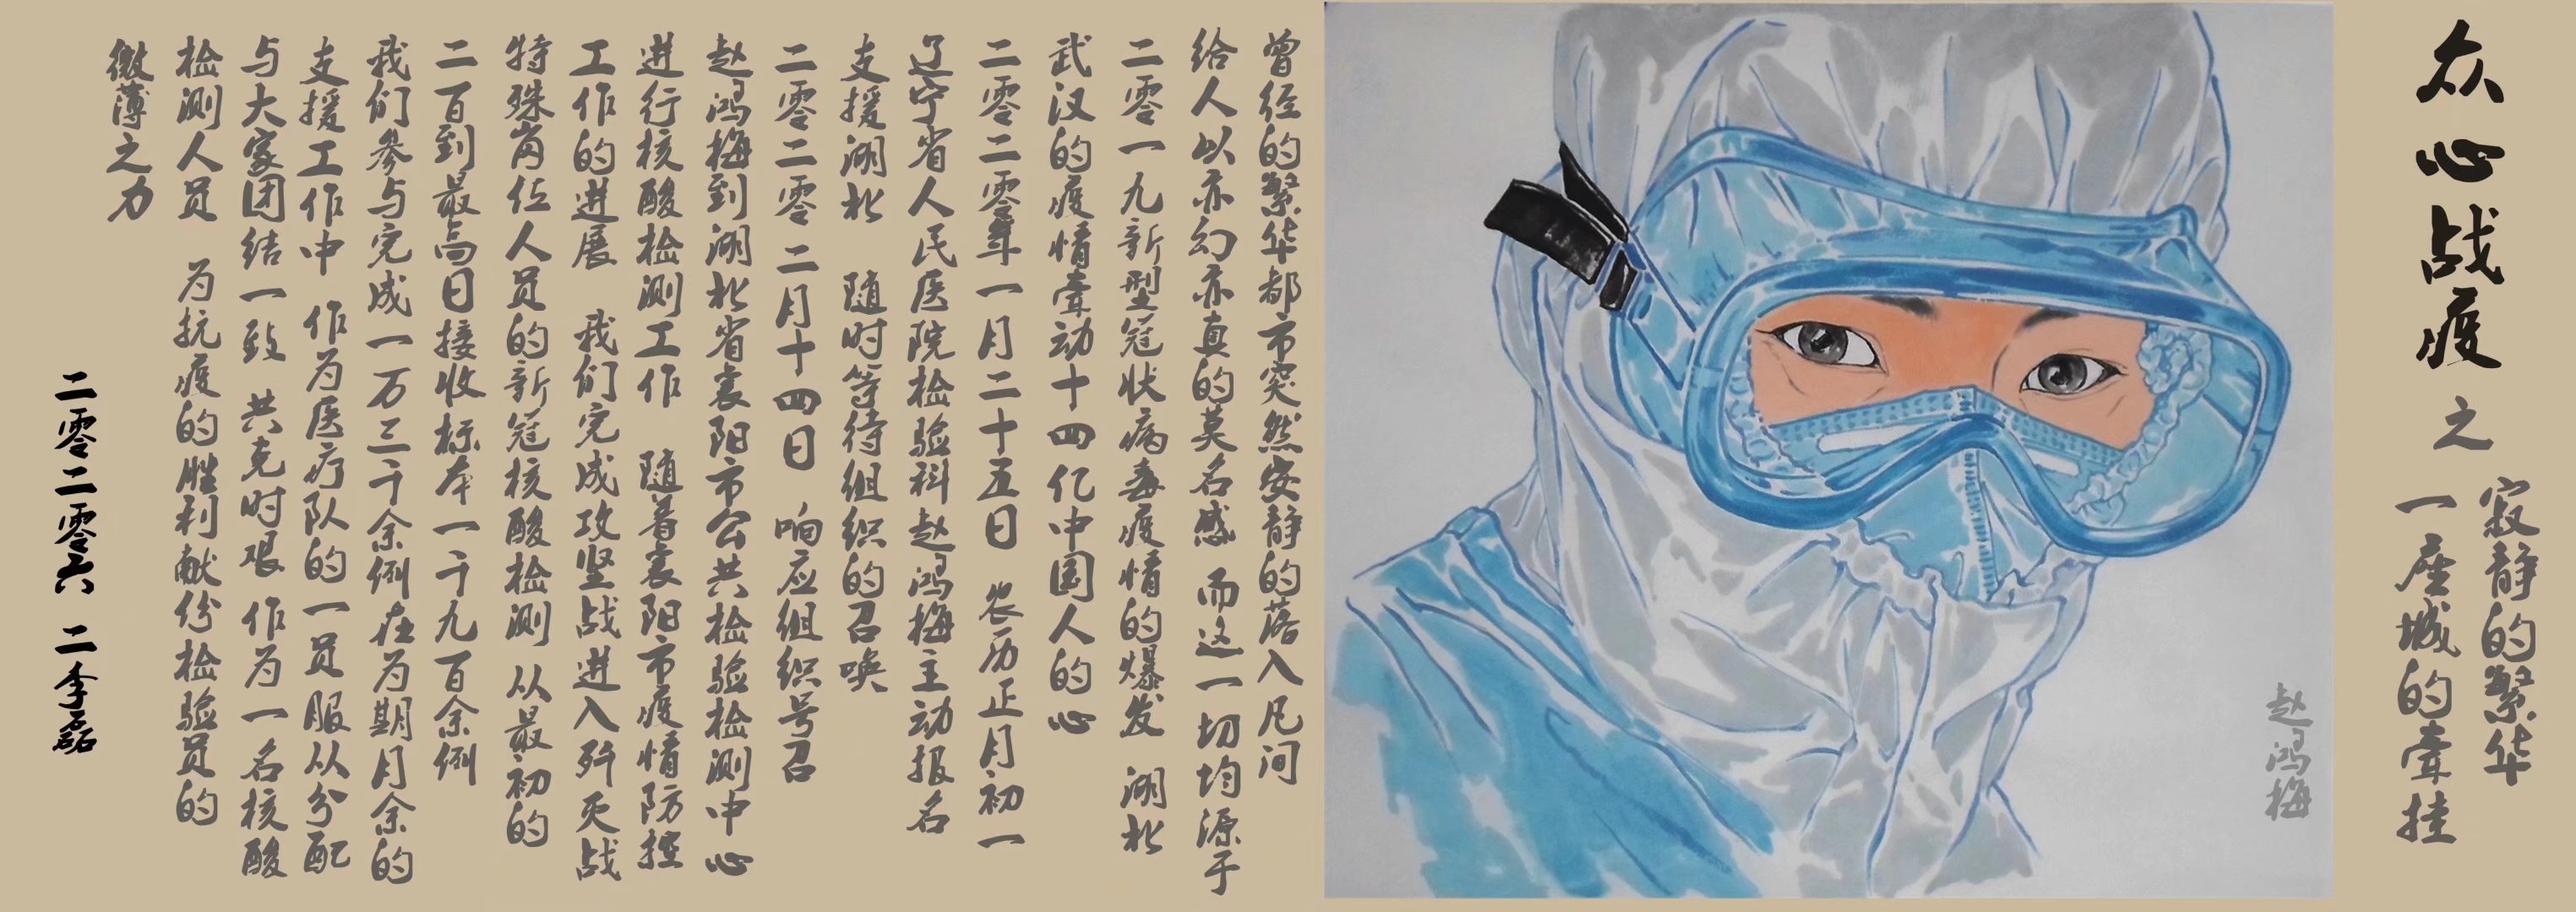 众心战疫之
寂静的繁华
一座城的牵挂
赵鸿梅
曾经的繁华都市突然安静的落入凡间
给人以亦幻亦真的莫名感 而这一切均源于
二零一九新型冠状病毒疫情的爆发 湖北
武汉的疫情牵动十四亿中国人的心
二零二零年一月二十五日 农历正月初一
辽宁省人民医院检验科赵鸿梅主动报名
支援湖北 随时等待组织的召唤
二零二零二月十四日 响应组织号召
赵鸿梅到湖北省襄阳市公共检验检测中心
进行核酸检测工作 随着襄阳市疫情防控
工作的进展 我们完成攻坚战进入歼灭战
特殊岗位人员的新冠核酸检测 从最初的
二百到最高日接收标本一千九百余例
我们参与完成一万三千余例在为期月余的
支援工作中 作为医疗队的一员服从分配
与大家团结一致 共克时艰 作为一名核酸
检测人员 为抗疫的胜利献份检验员的
微薄之力
二零二零六 二李磊